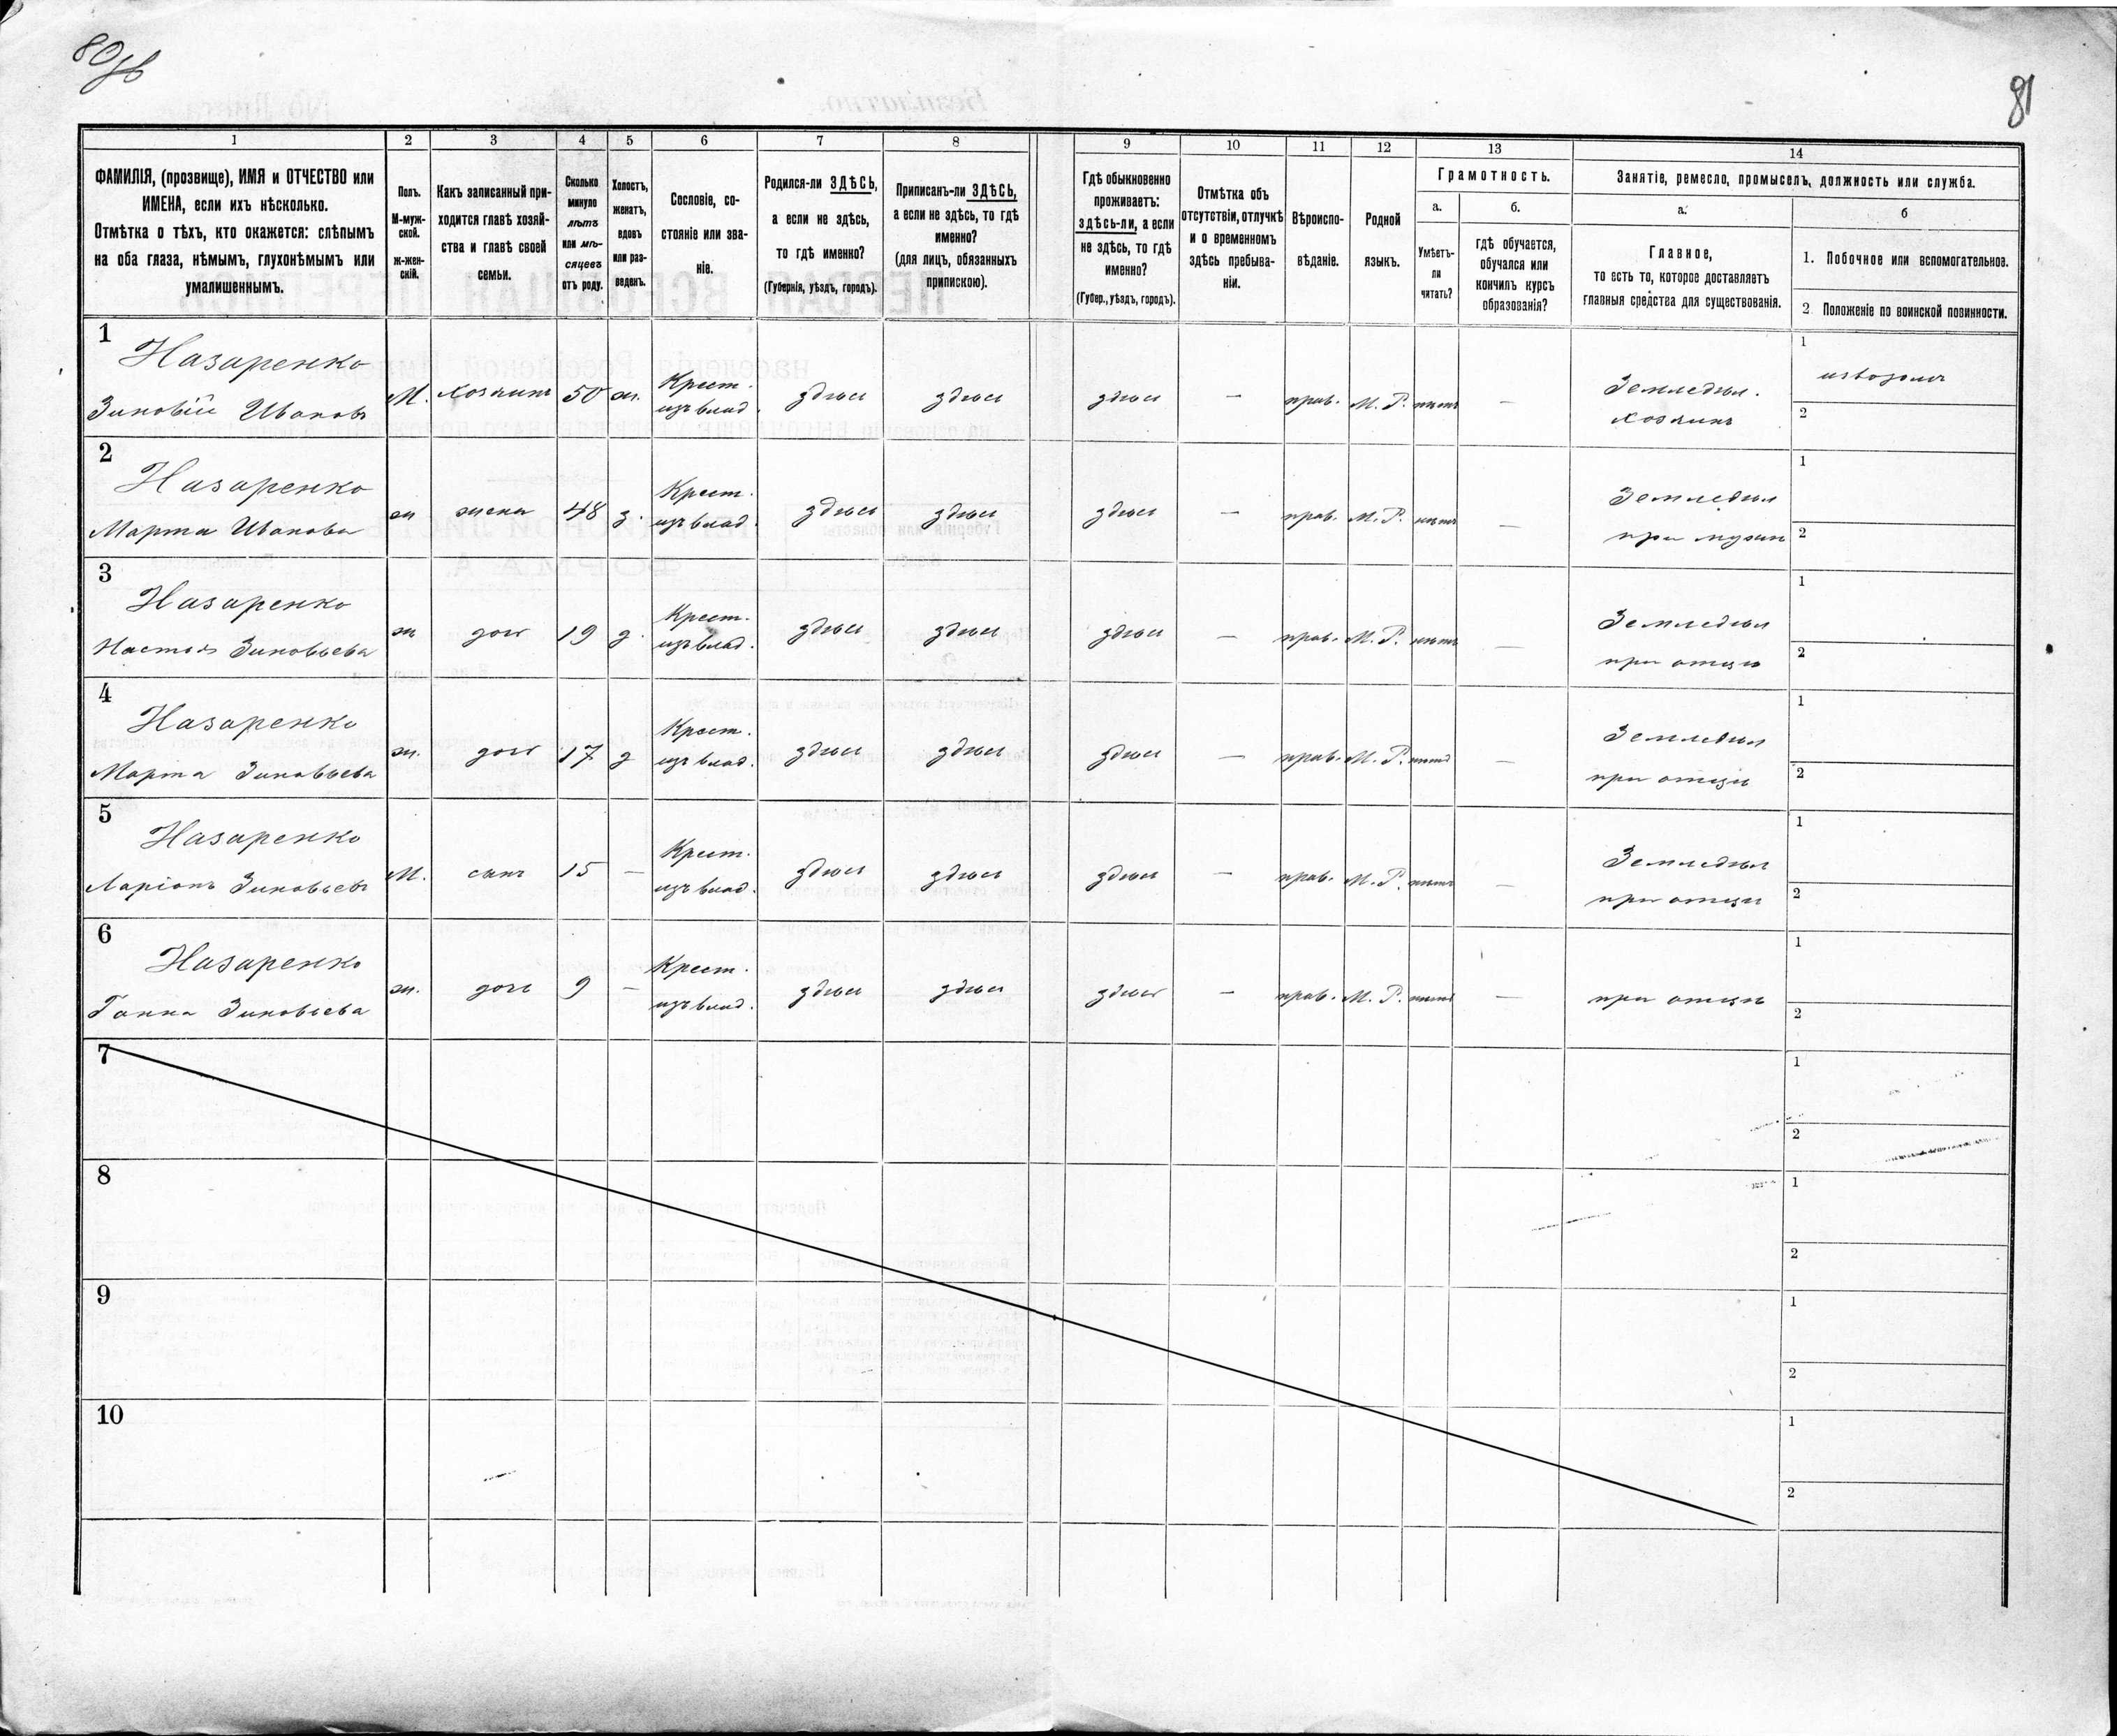 80об
81
1
2
3
4
5
6
7
8
9
10
11
12
13
14
ФАМИЛІЯ, (прозвище), ИМЯ и ОТЧЕСТВО или
ИМЕНА, если ихъ нѣсколько.
Отмѣтка о тѣхъ, кто окажется: слѣпымъ
на оба глаза, нѣмымъ, глухонѣмымъ или
умалишеннымъ.
Полъ.
М-муж-
ской.
ж-жен-
скій.
Какъ записанный при-
ходится главѣ хозяй-
ства и главѣ своей
семьи.
Сколько
минуло
лѣтъ
или мѣ-
сяцевъ
отъ роду.
Холостъ,
женатъ,
вдовъ
или раз-
веденъ.
Сословіе, со-
стояніе или зва-
ніе.
Родился-ли ЗДѢСЬ,
а если не здѣсь,
то гдѣ именно?
(Губернія, уѣздъ, городъ).
Приписанъ-ли ЗДѢСЬ,
а если не здѣсь, то гдѣ
именно?
(для лицъ, обязанныхъ
припискою).
Гдѣ обыкновенно
проживаетъ:
ЗДѢСЬ-ЛИ, а если
не здѣсь, то гдѣ
именно?
(Губер., уѣздъ, городъ).
Отмѣтка объ
отсутствіи, отлучкѣ
и о временномъ
здѣсь пребыва-
ніи.
Вѣроиспо-
вѣданіе.
Родной
языкъ.
Грамотность.
а.
Умѣетъ-
ли
читать?
б.
гдѣ обучается,
обучался или
кончилъ курсъ
образованія?
Занятіе, ремесло, промыселъ, должность или служба.
а.
Главное,
то есть то, которое доставляетъ
главныя средства для существованія.
б
1. Побочное или вспомогательное.
2 Положеніе по воинской повинности.
1
Назаренко
Зиновій Ивановъ
М. хозяинъ 50 ж. Крест. изъ влад. здѣсь здѣсь здѣсь — прав. М. Р. нѣтъ —
Земледѣл.
хозяинъ
1 извозомъ
2
2
Назаренко
Марта Иванова
ж жена 48 з. Крест. изъ влад. здѣсь здѣсь здѣсь — прав. М. Р. нѣтъ —
Земледѣл
при мужи
1
2
3
Назаренко
Настья Зиновьева
ж дочь 19 д. Крест. изъ влад. здѣсь здѣсь здѣсь — прав. М. Р. нѣтъ —
Земледѣл
при отцѣ
1
2
4
Назаренко
Марта Зиновьева
ж. дочь 17 д Крест. изъ влад. здѣсь здѣсь здѣсь — прав. М. Р. нѣтъ —
Земледѣл
при отцѣ
1
2
5
Назаренко
Ларіонъ Зиновьевъ
М. сынъ 15 — Крест. изъ влад. здѣсь здѣсь здѣсь — прав. М. Р. нѣтъ —
Земледѣл
при отцѣ
1
2
6
Назаренко
Ганна Зиновьева
ж. дочь 9 — Крест. изъ влад. здѣсь здѣсь здѣсь — прав. М. Р. нѣтъ —
при отцѣ
1
2
7
1
2
8
1
2
9
1
2
10
1
2